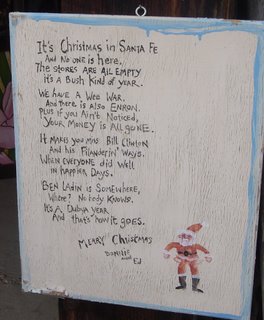 It's Christmas in Santa Fe
And No one is here.
The stores are all empty
it's a Bush kind of year.
We have a Wee War.
And there is also Enron.
Plus if you Ain't Noticed,
Your money is all gone.
It makes you miss Bill Clinton
And his Filanderin' Ways.
When everyone did well
in happier days.
Ben Ladin is somewhere,
Where? Nobody knows.
It's a Dubya year
And that's how it goes.
Merry Christmas
Bonnie and Ed